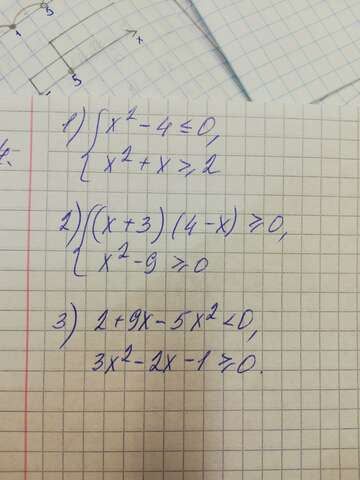 1
3
x
5
1) { x² - 4 ≤ 0,
x² + x ≥ 2
2) { (x + 3)(4 - x) ≥ 0,
x² - 9 ≥ 0
3) 2 + 9x - 5x² < 0,
3x² - 2x - 1 ≥ 0.